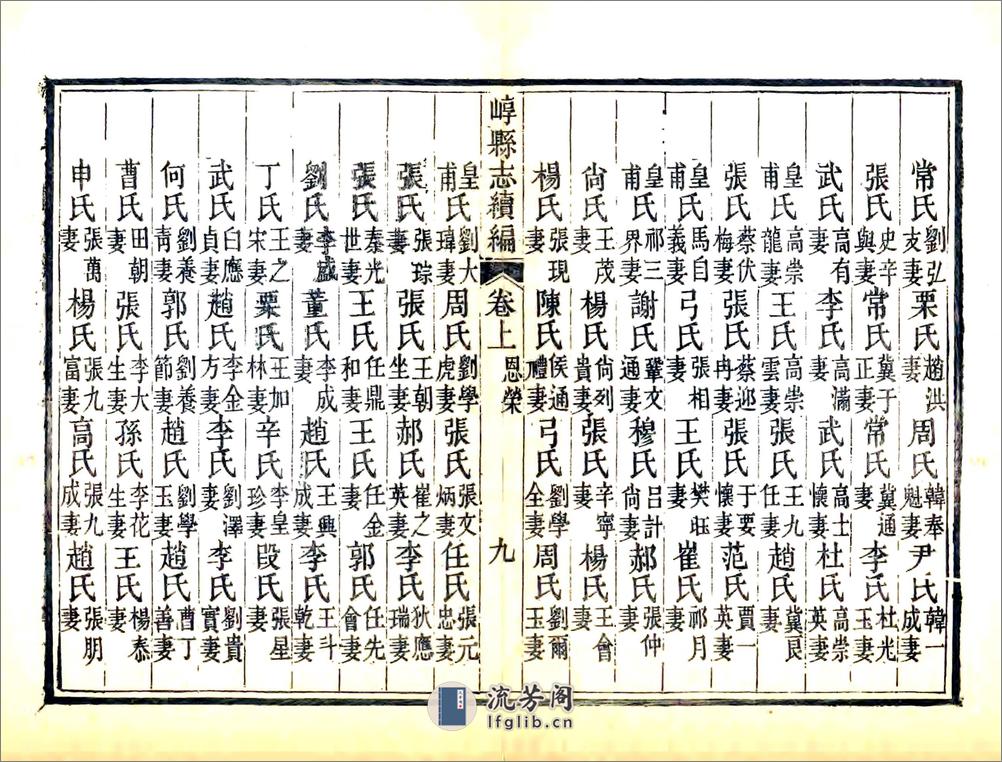 常氏劉弘支妻 栗氏趙洪妻 周氏韓奉魁妻 尹氏韓一成妻
張氏史辛與妻 常氏冀于正妻 常氏冀通妻 李氏杜光玉妻
武氏高有妻 李氏高滿妻 武氏高士懷妻 杜氏高崇英妻
皇甫氏高崇龍妻 王氏高崇雲妻 張氏王九任妻 趙氏冀良妻
張氏蔡伏梅妻 張氏蔡迎冉妻 張氏于要懷妻 范氏賈一英妻
皇甫氏馬自義妻 弓氏張相妻 王氏樊旺妻 崔氏祁月妻
皇甫氏祁三界妻 謝氏鞏文通妻 穆氏呂計尙妻 郝氏張仲妻
尙氏王茂妻 楊氏尙列貴妻 張氏辛寧妻 楊氏王會妻
楊氏張現妻 陳氏侯通禮妻 弓氏劉學全妻 周氏劉爾玉妻
崞縣志續編 卷上 恩榮 九
皇甫氏劉大瑋妻 周氏劉學虎妻 張氏張文炳妻 任氏張元忠妻
張氏張琮妻 張氏王朝坐妻 郝氏崔之英妻 李氏狄應瑞妻
張氏秦光世妻 王氏任鼎和妻 王氏任金妻 郭氏任先會妻
劉氏李盛妻 董氏李成妻 趙氏王興成妻 李氏王斗乾妻
丁氏王之宋妻 栗氏王加林妻 辛氏李皇珍妻 段氏張星妻
武氏白應貞妻 趙氏李金方妻 李氏劉澤妻 李氏劉貴實妻
何氏劉養靑妻 郭氏劉養節妻 趙氏劉學玉妻 趙氏曹丁善妻
曹氏田朝妻 張氏李大生妻 孫氏李花生妻 王氏楊泰妻
申氏張萬妻 楊氏張九富妻 高氏張九成妻 趙氏張朋妻
流芳阁
lfglib.cn